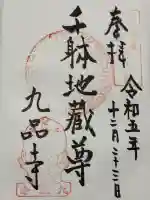 奉拝
令和五年
十二月二十三日
千躰地蔵尊
九品寺